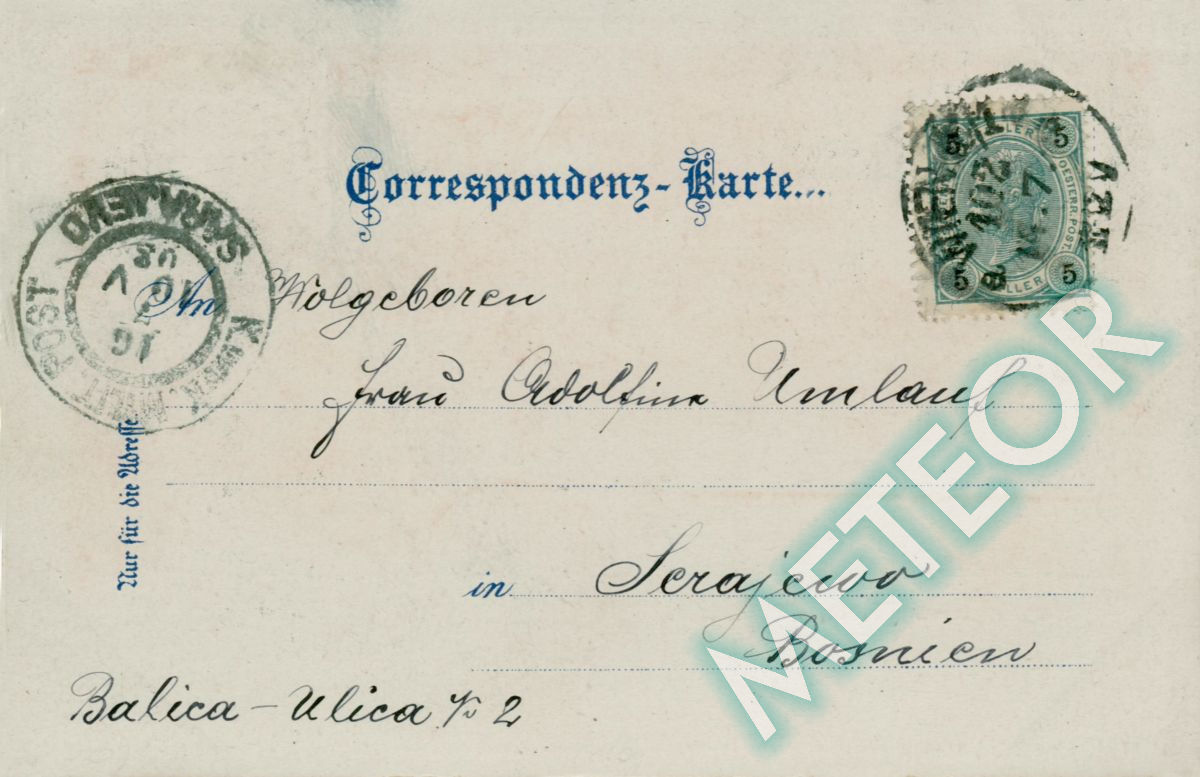 Correspondenz-Karte...
An Wolgeboren
Frau Adolfine Umlauf
in Serajewo
Bosnien
Balica - Ulica № 2
Nur für die Adresse
SARAJEVO
MILIT. POST
5 5
HELLER
OESTERR. POST.
5 5
HELLER
METEOR